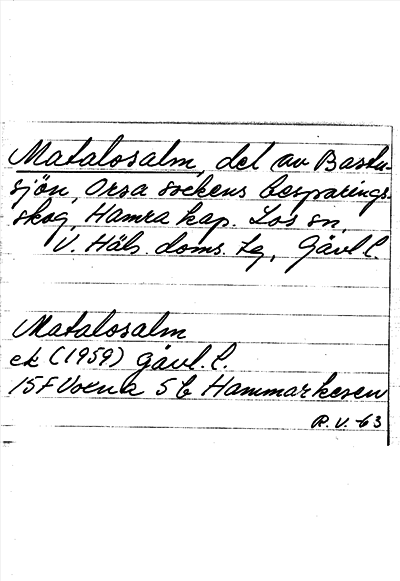 Matalosalm, del av Bastu-
sjön, Orsa sockens besparings-
skog, Hamra kap. Los sn,
V. Häls. doms. tg, Gävl. l.
Matalosalm
ek (1959) Gävl. l.
15F Voxna 5b Hammarkesen
R.V.-63